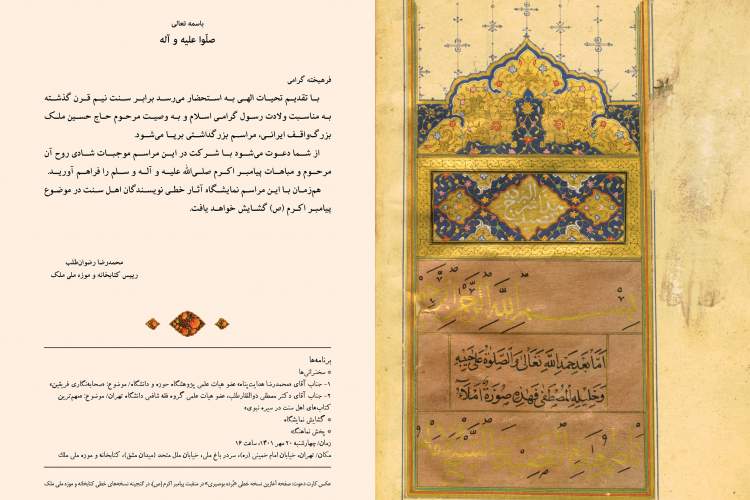 باسمه تعالی
صلّوا علیه و آله
فرهیخته گرامی
با تقدیم تحیات الهی به استحضار می‌رسد برابر سنت نیم قرن گذشته
به مناسبت ولادت رسول گرامی اسلام و به وصیت مرحوم حاج حسین ملک
بزرگ‌واقف ایرانی، مراسم بزرگداشتی برپا می‌شود.
از شما دعوت می‌شود با شرکت در این مراسم موجبات شادی روح آن
مرحوم و مباهات پیامبر اکرم صلی‌الله علیه و آله و سلم را فراهم آورید.
هم‌زمان با این مراسم نمایشگاه آثار خطی نویسندگان اهل سنت در موضوع
پیامبر اکرم (ص) گشایش خواهد یافت.
محمدرضا رضوان‌طلب
رییس کتابخانه و موزه ملی ملک
برنامه‌ها
* سخنرانی‌ها
۱- جناب آقای «محمدرضا هدایت‌پناه» عضو هیات علمی پژوهشگاه حوزه و دانشگاه/ موضوع: «صحابه‌نگاری فریقین»
۲- جناب آقای دکتر مصطفی ذوالفقارطلب، عضو هیات علمی گروه فقه شافعی دانشگاه تهران/ موضوع: «مهم‌ترین
کتاب‌های اهل سنت در سیره نبوی»
* گشایش نمایشگاه
* پخش نماهنگ
زمان/ چهارشنبه ۲۰ مهر ۱۴۰۱، ساعت ۱۶
مکان/ تهران، خیابان امام خمینی (ره)، سردر باغ ملی، خیابان ملل متحد (میدان مشق)، کتابخانه و موزه ملی ملک
عکس کارت دعوت: صفحه آغازین نسخه خطی «بُرده بوصیری» در منقبت پیامبر اکرم (ص)، در گنجینه نسخه‌های خطی کتابخانه و موزه ملی ملک
بسم الله الرحمن
اما بعد حمد الله تعالى والصلوة على حبيبه
وخليله المصطفى فهذه صورة املاء